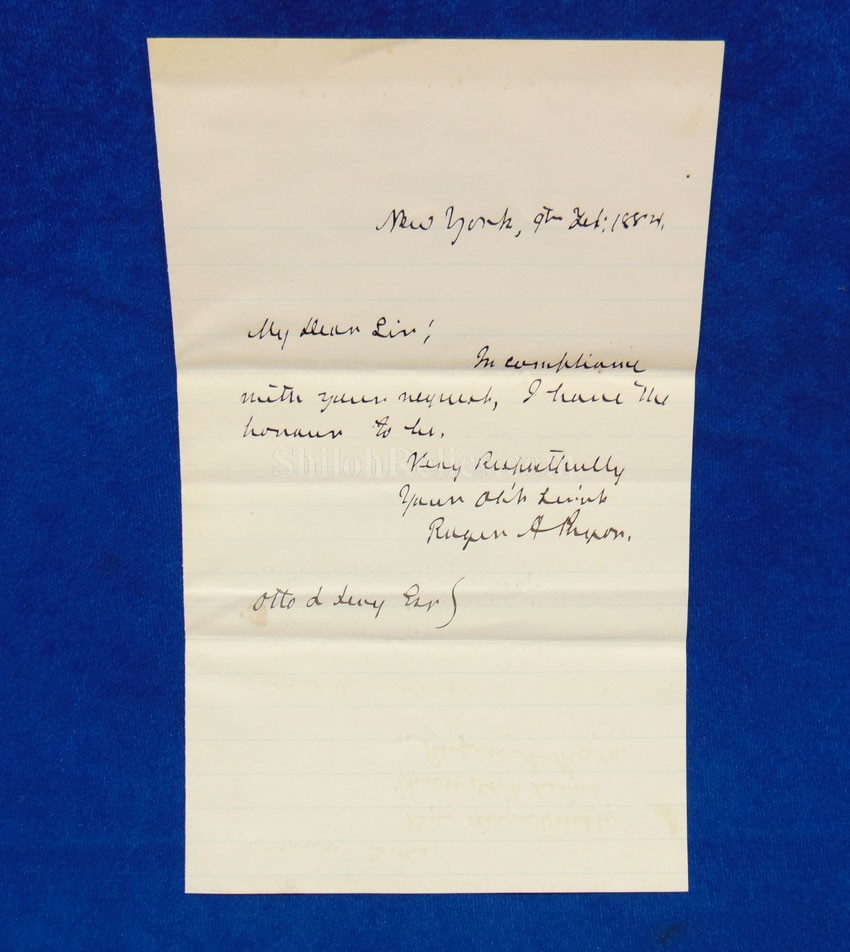 New York, 9th Feb: 1884.
My Dear Sir;
In compliance
with your request, I have the
honour to be.
ShilohRelics.com
Very Respectfully
Your Ob't Serv't
Roger A Pryor.
Otto Levy Esqr